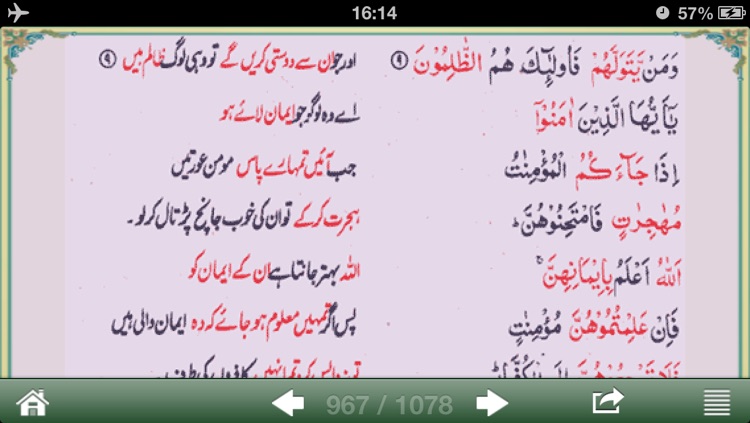 16:14 57%
وَمَنْ يَّتَوَلَّهُمْ فَاُولٰٓئِكَ هُمُ الظّٰلِمُوْنَ ۹ اور جو ان سے دوستی کریں گے تو وہی لوگ ظالم ہیں ۹
يٰٓاَيُّهَا الَّذِيْنَ اٰمَنُوْٓا اے وہ لوگو جو ایمان لائے ہو
اِذَا جَآءَكُمُ الْمُؤْمِنٰتُ جب آئیں تمہارے پاس مومن عورتیں
مُهٰجِرٰتٍ فَامْتَحِنُوْهُنَّ ؕ ہجرت کر کے تو ان کی خوب جانچ پڑتال کر لو۔
اَللّٰهُ اَعْلَمُ بِاِيْمَانِهِنَّ ۚ اللہ بہتر جانتا ہے ان کے ایمان کو
فَاِنْ عَلِمْتُمُوْهُنَّ مُؤْمِنٰتٍ پس اگر تمہیں معلوم ہو جائے کہ وہ ایمان والی ہیں
967 / 1078